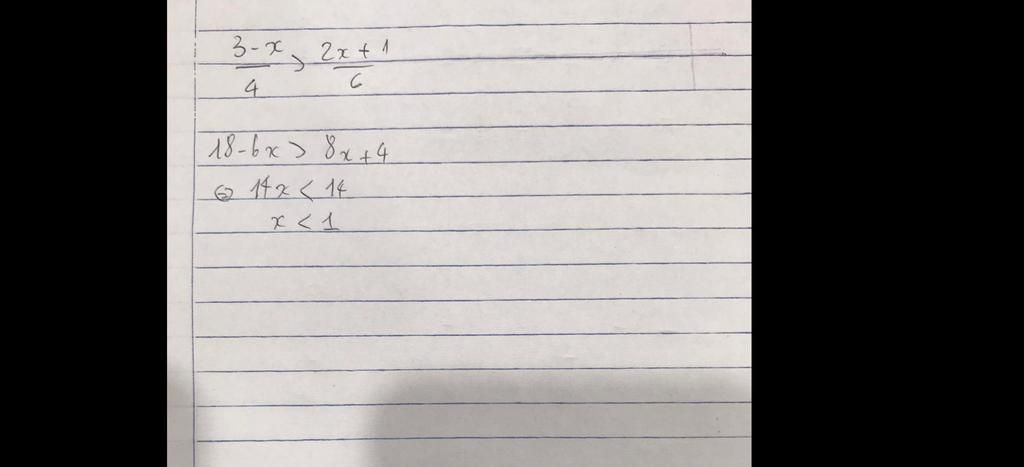 3-x/4 > 2x+1/6
18-6x > 8x+4
⇔ 14x < 14
x < 1